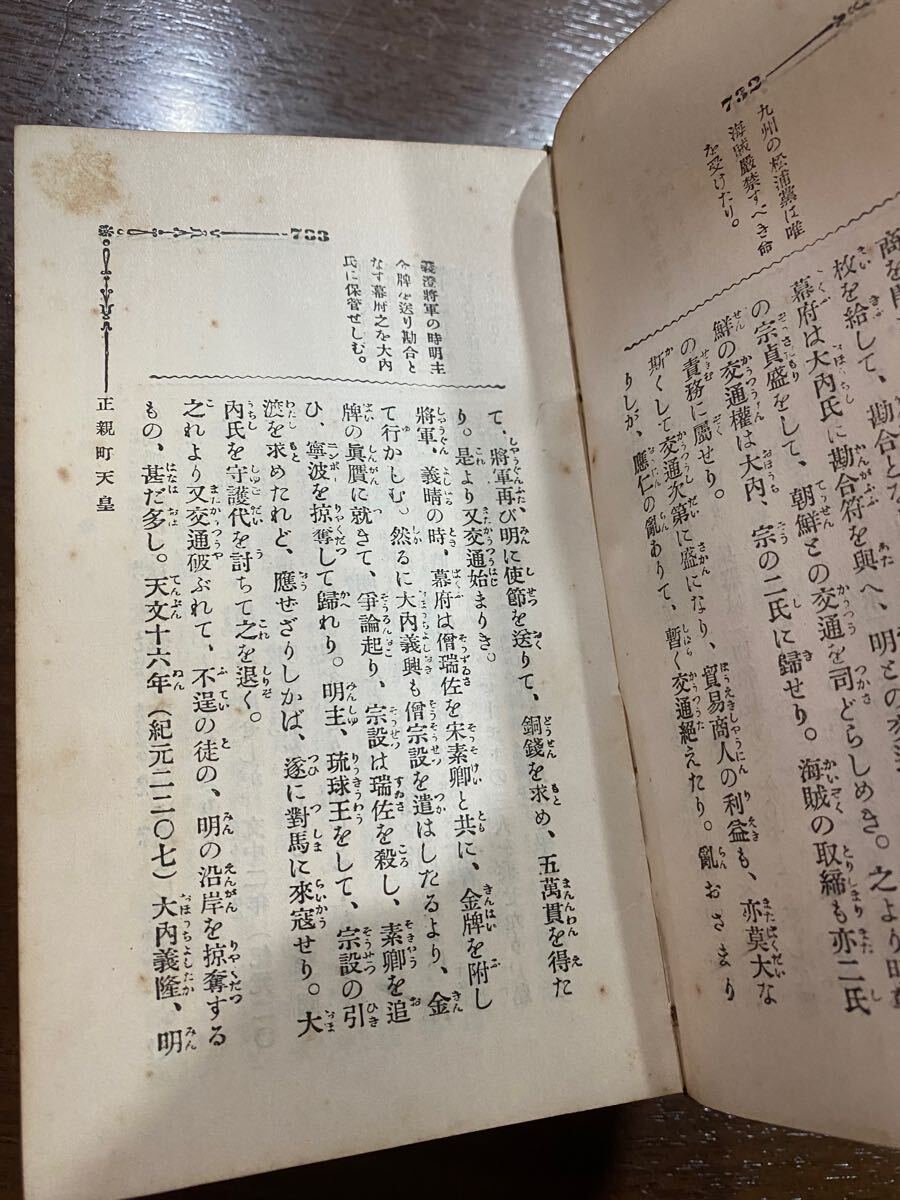 732
九州の松浦黨は唯
海賊嚴禁すべき命
を受けたり。
枚を給して、勘合とな
幕府は大内氏に勘合符を興へ、明との交
の宗貞盛をして、朝鮮との交通を司どらしめき。之より
鮮の交通權は大内、宗の二氏に歸せり。海賊の取締も亦二氏
の責務に屬せり。
斯くして交通次第に盛になり、貿易商人の利益も、亦莫大な
りしが、應仁の亂ありて、暫く交通絶えたり。亂おさまり
733
義澄將軍の時明主
金牌を送り勘合と
なす幕府之を大内
氏に保管せしむ。
て、將軍再び明に使節を送りて、銅錢を求め、五萬貫を得た
り。是より又交通始まりき。
將軍、義晴の時、幕府は僧瑞佐を宋素卿と共に、金牌を附し
て行かしむ。然るに大内義興も僧宗設を遣はしたるより、金
牌の眞贋に就きて、爭論起り、宗設は瑞佐を殺し、素卿を追
ひ、寧波を掠奪して歸れり。明主、琉球王をして、宗設の引
渡を求めたれど、應ぜざりしかば、遂に對馬に來寇せり。大
内氏を守護代を討ちて之を退く。
之れより又交通破ぶれて、不逞の徒の、明の沿岸を掠奪する
もの、甚だ多し。天文十六年（紀元二二〇七）大内義隆、明
正親町天皇